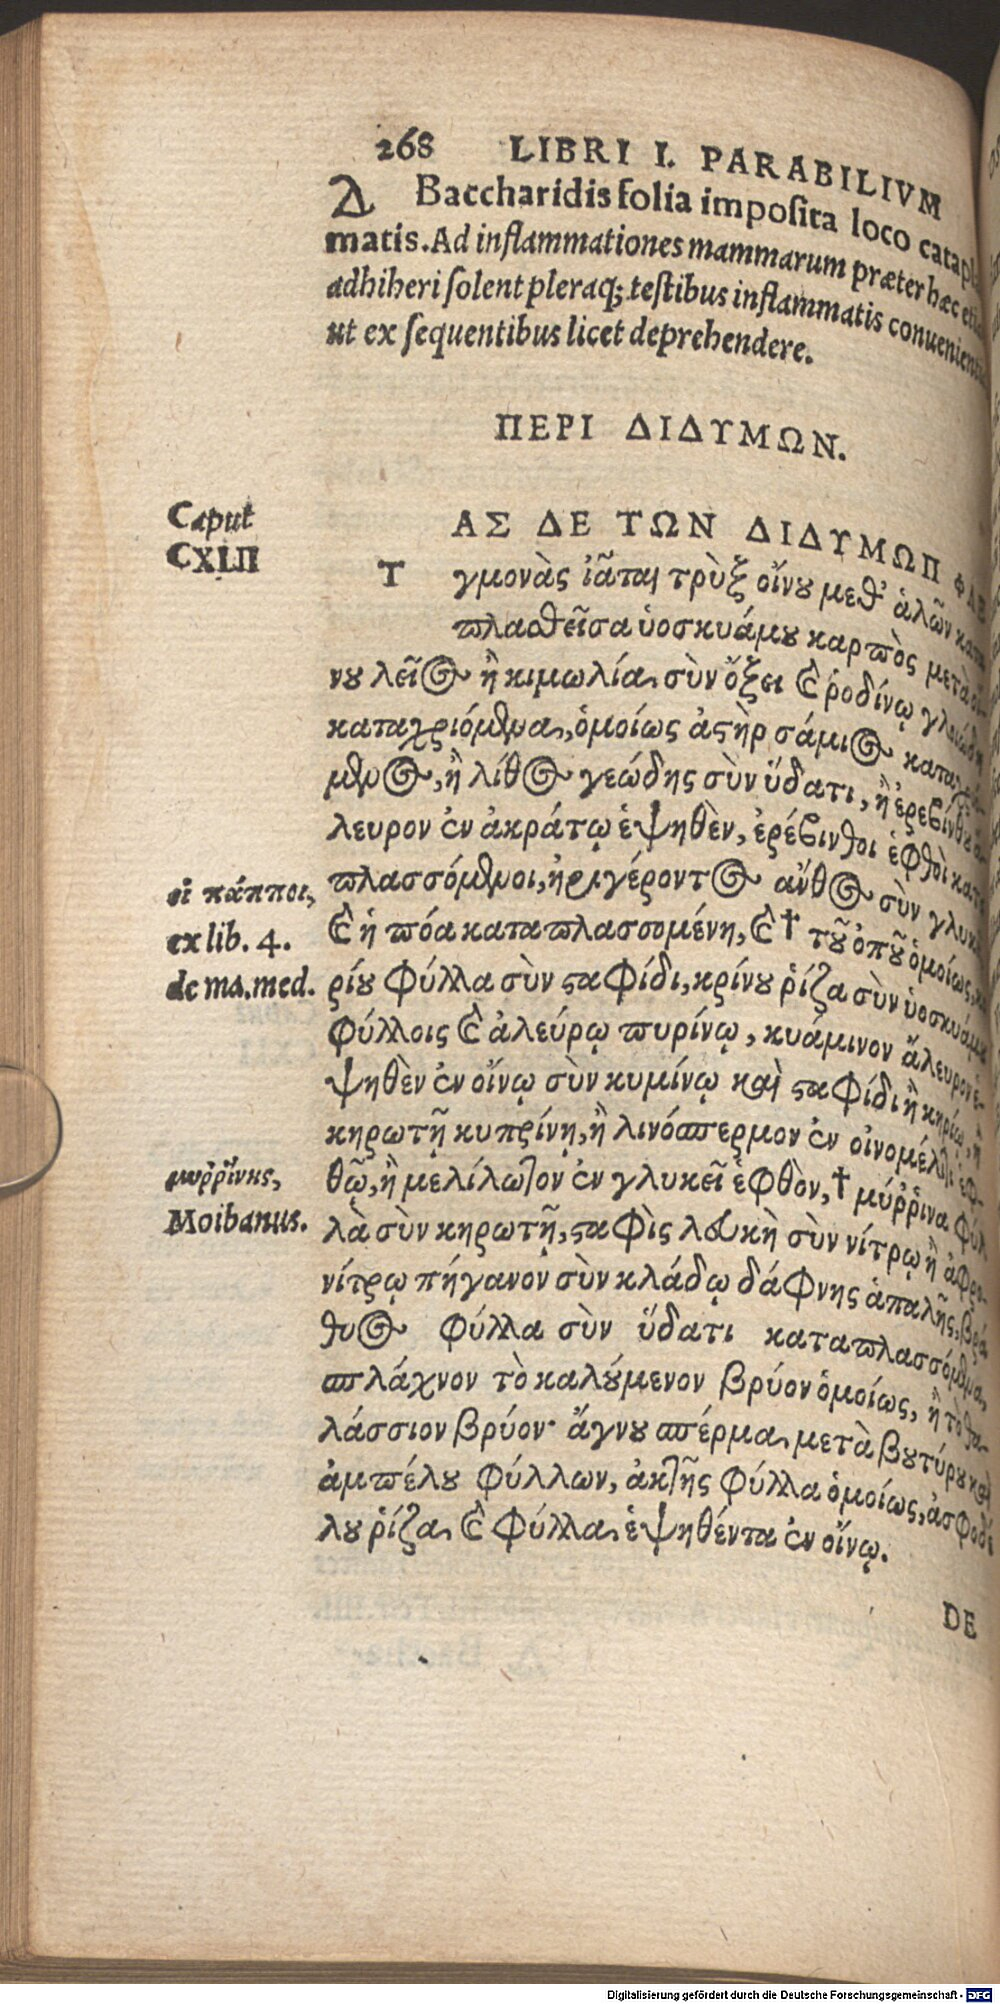 268 LIBRI I. PARABILIVM
Δ Baccharidis folia imposita loco catapla
matis. Ad inflammationes mammarum præter hæc etiā
adhiberi solent pleraq; testibus inflammatis convenientia
ut ex sequentibus licet deprehendere.
ΠΕΡΙ ΔΙΔΥΜΩΝ.
Caput
CXLII
ΑΣ ΔΕ ΤΩΝ ΔΙΔΥΜΩΠ ΦΛΕ
Τ γμονὰς ἰᾶται τρὺξ οἴνου μεθ' ἁλῶν κατα
πλασθεῖσα ὑοσκυάμου καρπὸς μετὰ οἴ-
νου λεῖος ἢ κιμωλία, σὺν ὄξει καὶ ῥοδίνῳ γλοιώδη
καταχριόμενα, ὁμοίως ἀστὴρ σάμιος καταχριό-
μενος, ἢ λίθος γεώδης σὺν ὕδατι, ἢ ἐρεβίνθου ἄ-
λευρον ἐν ἀκράτῳ ἑψηθὲν, ἐρέβινθοι ἑφθοὶ κατα
πλασσόμενοι, ἠριγέροντος ἄνθος σὺν γλυκεῖ
καὶ ἡ πόα καταπλασσομένη, καὶ † τοῦ ὀποῦ ὁμοίως,
ρίου φύλλα σὺν σταφίδι, κρίνου ῥίζα σὺν ὑοσκυάμου
φύλλοις καὶ ἀλεύρῳ πυρίνῳ, κυάμινον ἄλευρον ἑ-
ψηθὲν ἐν οἴνῳ σὺν κυμίνῳ καὶ σταφίδι ἢ κηρίῳ, ἢ
κηρωτῇ κυπρίνῃ, ἢ λινόσπερμον ἐν οἰνομέλιτι ἑφ-
θῷ, ἢ μελίλωτον ἐν γλυκεῖ ἑφθὸν, † μύῤῥινα φύλ
λὰ σὺν κηρωτῇ, σταφὶς λευκὴ σὺν νίτρῳ ἢ ἀφρο-
νίτρῳ πήγανον σὺν κλάδῳ δάφνης ἁπαλῆς, βρά
θυος φύλλα σὺν ὕδατι καταπλασσόμενα,
σπλάχνον τὸ καλούμενον βρύον ὁμοίως, ἢ τὸ θα-
λάσσιον βρύον· ἄγνου σπέρμα, μετὰ βουτύρου καὶ
ἀμπέλου φύλλων, ἀκτῆς φύλλα ὁμοίως, ἀσφοδέ
λου ῥίζα, καὶ φύλλα, ἑψηθέντα ἐν οἴνῳ.
οἱ πάπποι,
ex lib. 4.
de ma.med.
μυῤῥίνης,
Moibanus.
DE
Digitalisierung gefördert durch die Deutsche Forschungsgemeinschaft - DFG